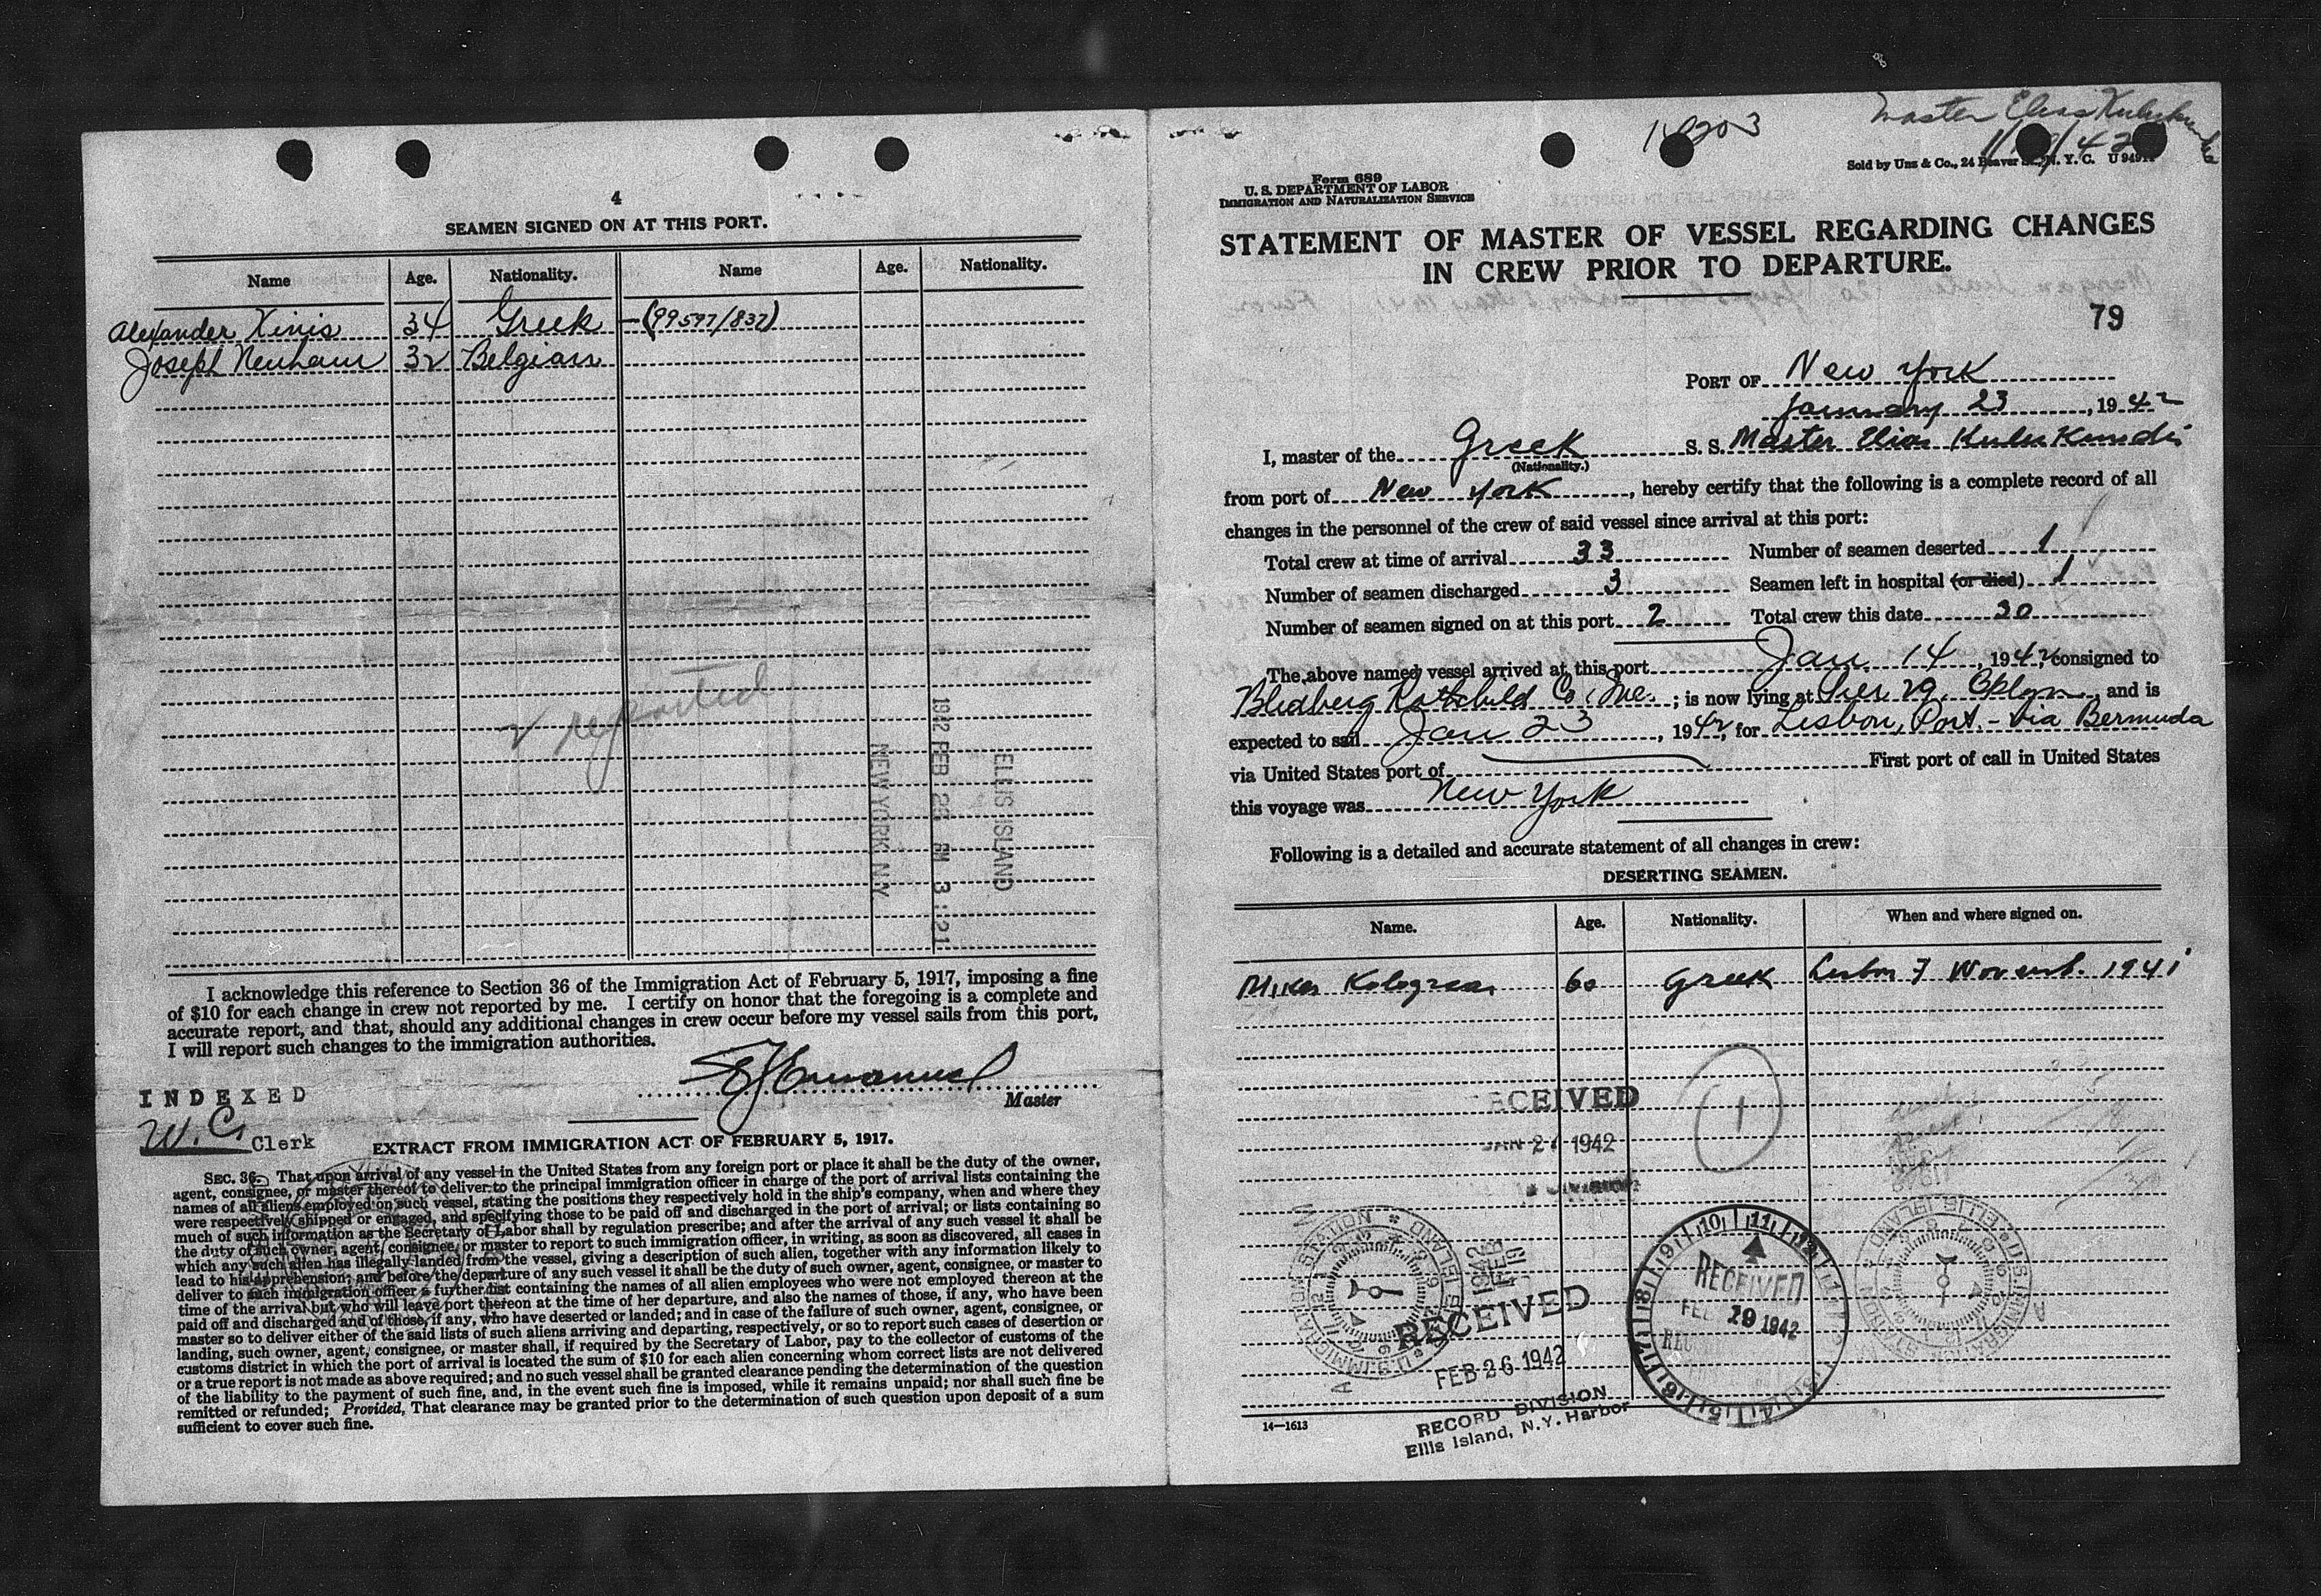 4
SEAMEN SIGNED ON AT THIS PORT.
Name Age. Nationality. Name Age. Nationality.
Alexander Xinis 34 Greek —(99597/832)
Joseph 32 Belgian
v reported
ELLIS ISLAND
1942 FEB 26 3:21
NEW YORK N.Y.
I acknowledge this reference to Section 36 of the Immigration Act of February 5, 1917, imposing a fine
of $10 for each change in crew not reported by me. I certify on honor that the foregoing is a complete and
accurate report, and that, should any additional changes in crew occur before my vessel sails from this port,
I will report such changes to the immigration authorities.
Master
INDEXED
Clerk
EXTRACT FROM IMMIGRATION ACT OF FEBRUARY 5, 1917.
SEC. 36. That upon arrival of any vessel in the United States from any foreign port or place it shall be the duty of the owner,
agent, consignee, or master thereof to deliver to the principal immigration officer in charge of the port of arrival lists containing the
names of all aliens employed on such vessel, stating the positions they respectively hold in the ship's company, when and where they
were respectively shipped or engaged, and specifying those to be paid off and discharged in the port of arrival; or lists containing so
much of such information as the Secretary of Labor shall by regulation prescribe; and after the arrival of any such vessel it shall be
the duty of such owner, agent, consignee, or master to report to such immigration officer, in writing, as soon as discovered, all cases in
which any such alien has illegally landed from the vessel, giving a description of such alien, together with any information likely to
lead to his apprehension; and before the departure of any such vessel it shall be the duty of such owner, agent, consignee, or master to
deliver to such immigration officer a further list containing the names of all alien employees who were not employed thereon at the
time of the arrival but who will leave port thereon at the time of her departure, and also the names of those, if any, who have been
paid off and discharged and of those, if any, who have deserted or landed; and in case of the failure of such owner, agent, consignee, or
master so to deliver either of the said lists of such aliens arriving and departing, respectively, or so to report such cases of desertion or
landing, such owner, agent, consignee, or master shall, if required by the Secretary of Labor, pay to the collector of customs of the
customs district in which the port of arrival is located the sum of $10 for each alien concerning whom correct lists are not delivered
or a true report is not made as above required; and no such vessel shall be granted clearance pending the determination of the question
of the liability to the payment of such fine, and, in the event such fine is imposed, while it remains unpaid; nor shall such fine be
remitted or refunded; Provided, That clearance may be granted prior to the determination of such question upon deposit of a sum
sufficient to cover such fine.
Master Elias
Sold by Unz & Co., 24 Beaver St., N. Y. C.
Form 689
U. S. DEPARTMENT OF LABOR
IMMIGRATION AND NATURALIZATION SERVICE
STATEMENT OF MASTER OF VESSEL REGARDING CHANGES
IN CREW PRIOR TO DEPARTURE.
79
PORT OF New York
January 23, 1942
I, master of the Greek S. S. Master Elias Kulukundis
(Nationality.)
from port of New York, hereby certify that the following is a complete record of all
changes in the personnel of the crew of said vessel since arrival at this port:
Total crew at time of arrival 33 Number of seamen deserted 1
Number of seamen discharged 3 Seamen left in hospital (or died) 1
Number of seamen signed on at this port 2 Total crew this date 30
The above named vessel arrived at this port Jan 14, 1942, consigned to
Rothchild Co. Inc.; is now lying at Pier 29, Bklyn, and is
expected to sail Jan 23, 1942, for Lisbon, Port. - via Bermuda
via United States port of First port of call in United States
this voyage was New York
Following is a detailed and accurate statement of all changes in crew:
DESERTING SEAMEN.
Name. Age. Nationality. When and where signed on.
60 Greek Lisbon 7 Novemb. 1941
1
RECEIVED
1942
RECEIVED
FEB 26 1942
RECORD DIVISION
Ellis Island, N.Y. Harbor
RECEIVED
FEB 19 1942
14—1613